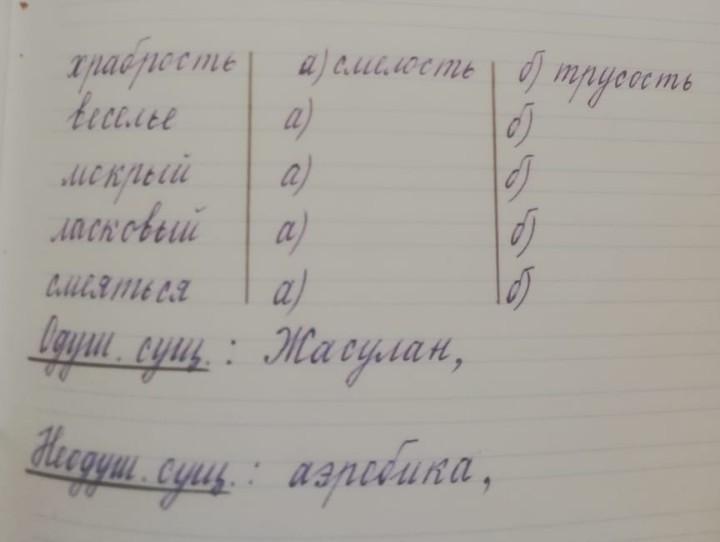 храбрость а) смелость б) трусость
веселье а) б)
мокрый а) б)
ласковый а) б)
смеяться а) б)
Одуш. сущ.: Жасулан,
Неодуш. сущ.: аэробика,